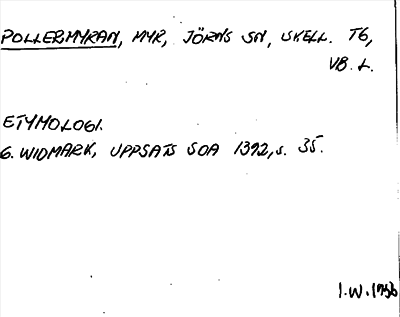 POLLERMYRAN, MYR, JÖRNS SN, SKELL. TG,
VB. L.
ETYMOLOGI.
G. WIDMARK, UPPSATS SOA 1392, s. 35.
I.W. 1956